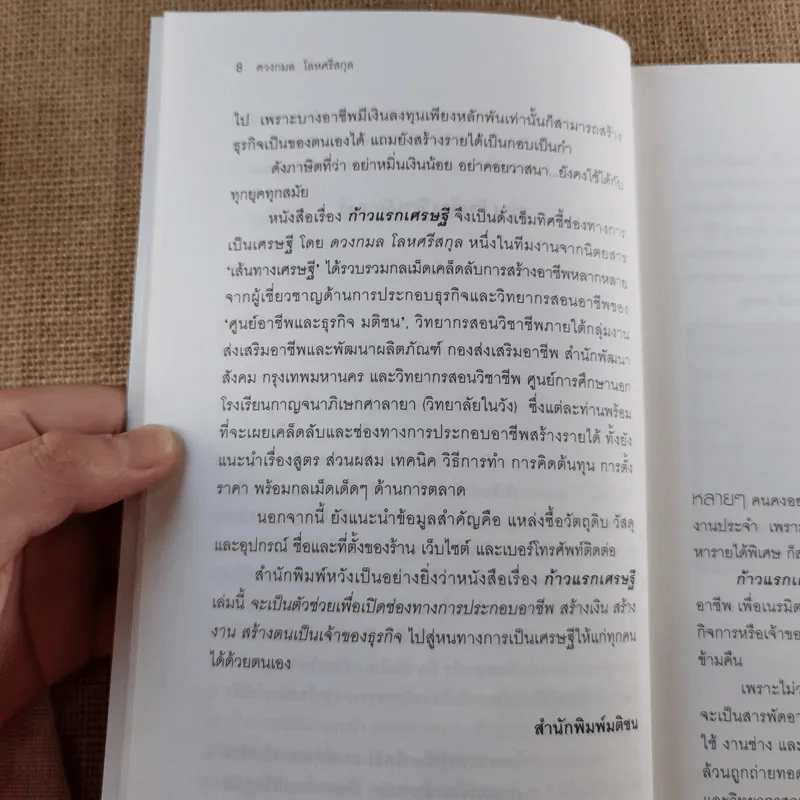 8 ดวงกมล โลหศรีสกุล
ไป เพราะบางอาชีพมีเงินลงทุนเพียงหลักพันเท่านั้นก็สามารถสร้าง
ธุรกิจเป็นของตนเองได้ แถมยังสร้างรายได้เป็นกอบเป็นกำ
ดังภาษิตที่ว่า อย่าหมิ่นเงินน้อย อย่าคอยวาสนา...ยังคงใช้ได้กับ
ทุกยุคทุกสมัย
หนังสือเรื่อง ก้าวแรกเศรษฐี จึงเป็นดั่งเข็มทิศชี้ช่องทางการ
เป็นเศรษฐี โดย ดวงกมล โลหศรีสกุล หนึ่งในทีมงานจากนิตยสาร
'เส้นทางเศรษฐี' ได้รวบรวมกลเม็ดเคล็ดลับการสร้างอาชีพหลากหลาย
จากผู้เชี่ยวชาญด้านการประกอบธุรกิจและวิทยากรสอนอาชีพของ
'ศูนย์อาชีพและธุรกิจ มติชน', วิทยากรสอนวิชาชีพภายใต้กลุ่มงาน
ส่งเสริมอาชีพและพัฒนาผลิตภัณฑ์ กองส่งเสริมอาชีพ สำนักพัฒนา
สังคม กรุงเทพมหานคร และวิทยากรสอนวิชาชีพ ศูนย์การศึกษานอก
โรงเรียนกาญจนาภิเษกศาลายา (วิทยาลัยในวัง) ซึ่งแต่ละท่านพร้อม
ที่จะเผยเคล็ดลับและช่องทางการประกอบอาชีพสร้างรายได้ ทั้งยัง
แนะนำเรื่องสูตร ส่วนผสม เทคนิค วิธีการทำ การคิดต้นทุน การตั้ง
ราคา พร้อมกลเม็ดเด็ดๆ ด้านการตลาด
นอกจากนี้ ยังแนะนำข้อมูลสำคัญคือ แหล่งซื้อวัตถุดิบ วัสดุ
และอุปกรณ์ ชื่อและที่ตั้งของร้าน เว็บไซต์ และเบอร์โทรศัพท์ติดต่อ
สำนักพิมพ์หวังเป็นอย่างยิ่งว่าหนังสือเรื่อง ก้าวแรกเศรษฐี
เล่มนี้ จะเป็นตัวช่วยเพื่อเปิดช่องทางการประกอบอาชีพ สร้างเงิน สร้าง
งาน สร้างตนเป็นเจ้าของธุรกิจ ไปสู่หนทางการเป็นเศรษฐีให้แก่ทุกคน
ได้ด้วยตนเอง
สำนักพิมพ์มติชน
หลายๆ คนคงอย
งานประจำ เพรา
หารายได้พิเศษ ก็ส
ก้าวแรกเ
อาชีพ เพื่อเนรมิต
กิจการหรือเจ้าขอ
ข้ามคืน
เพราะไม่ว
จะเป็นสารพัดอา
ใช้ งานช่าง และ
ล้วนถูกถ่ายทอด